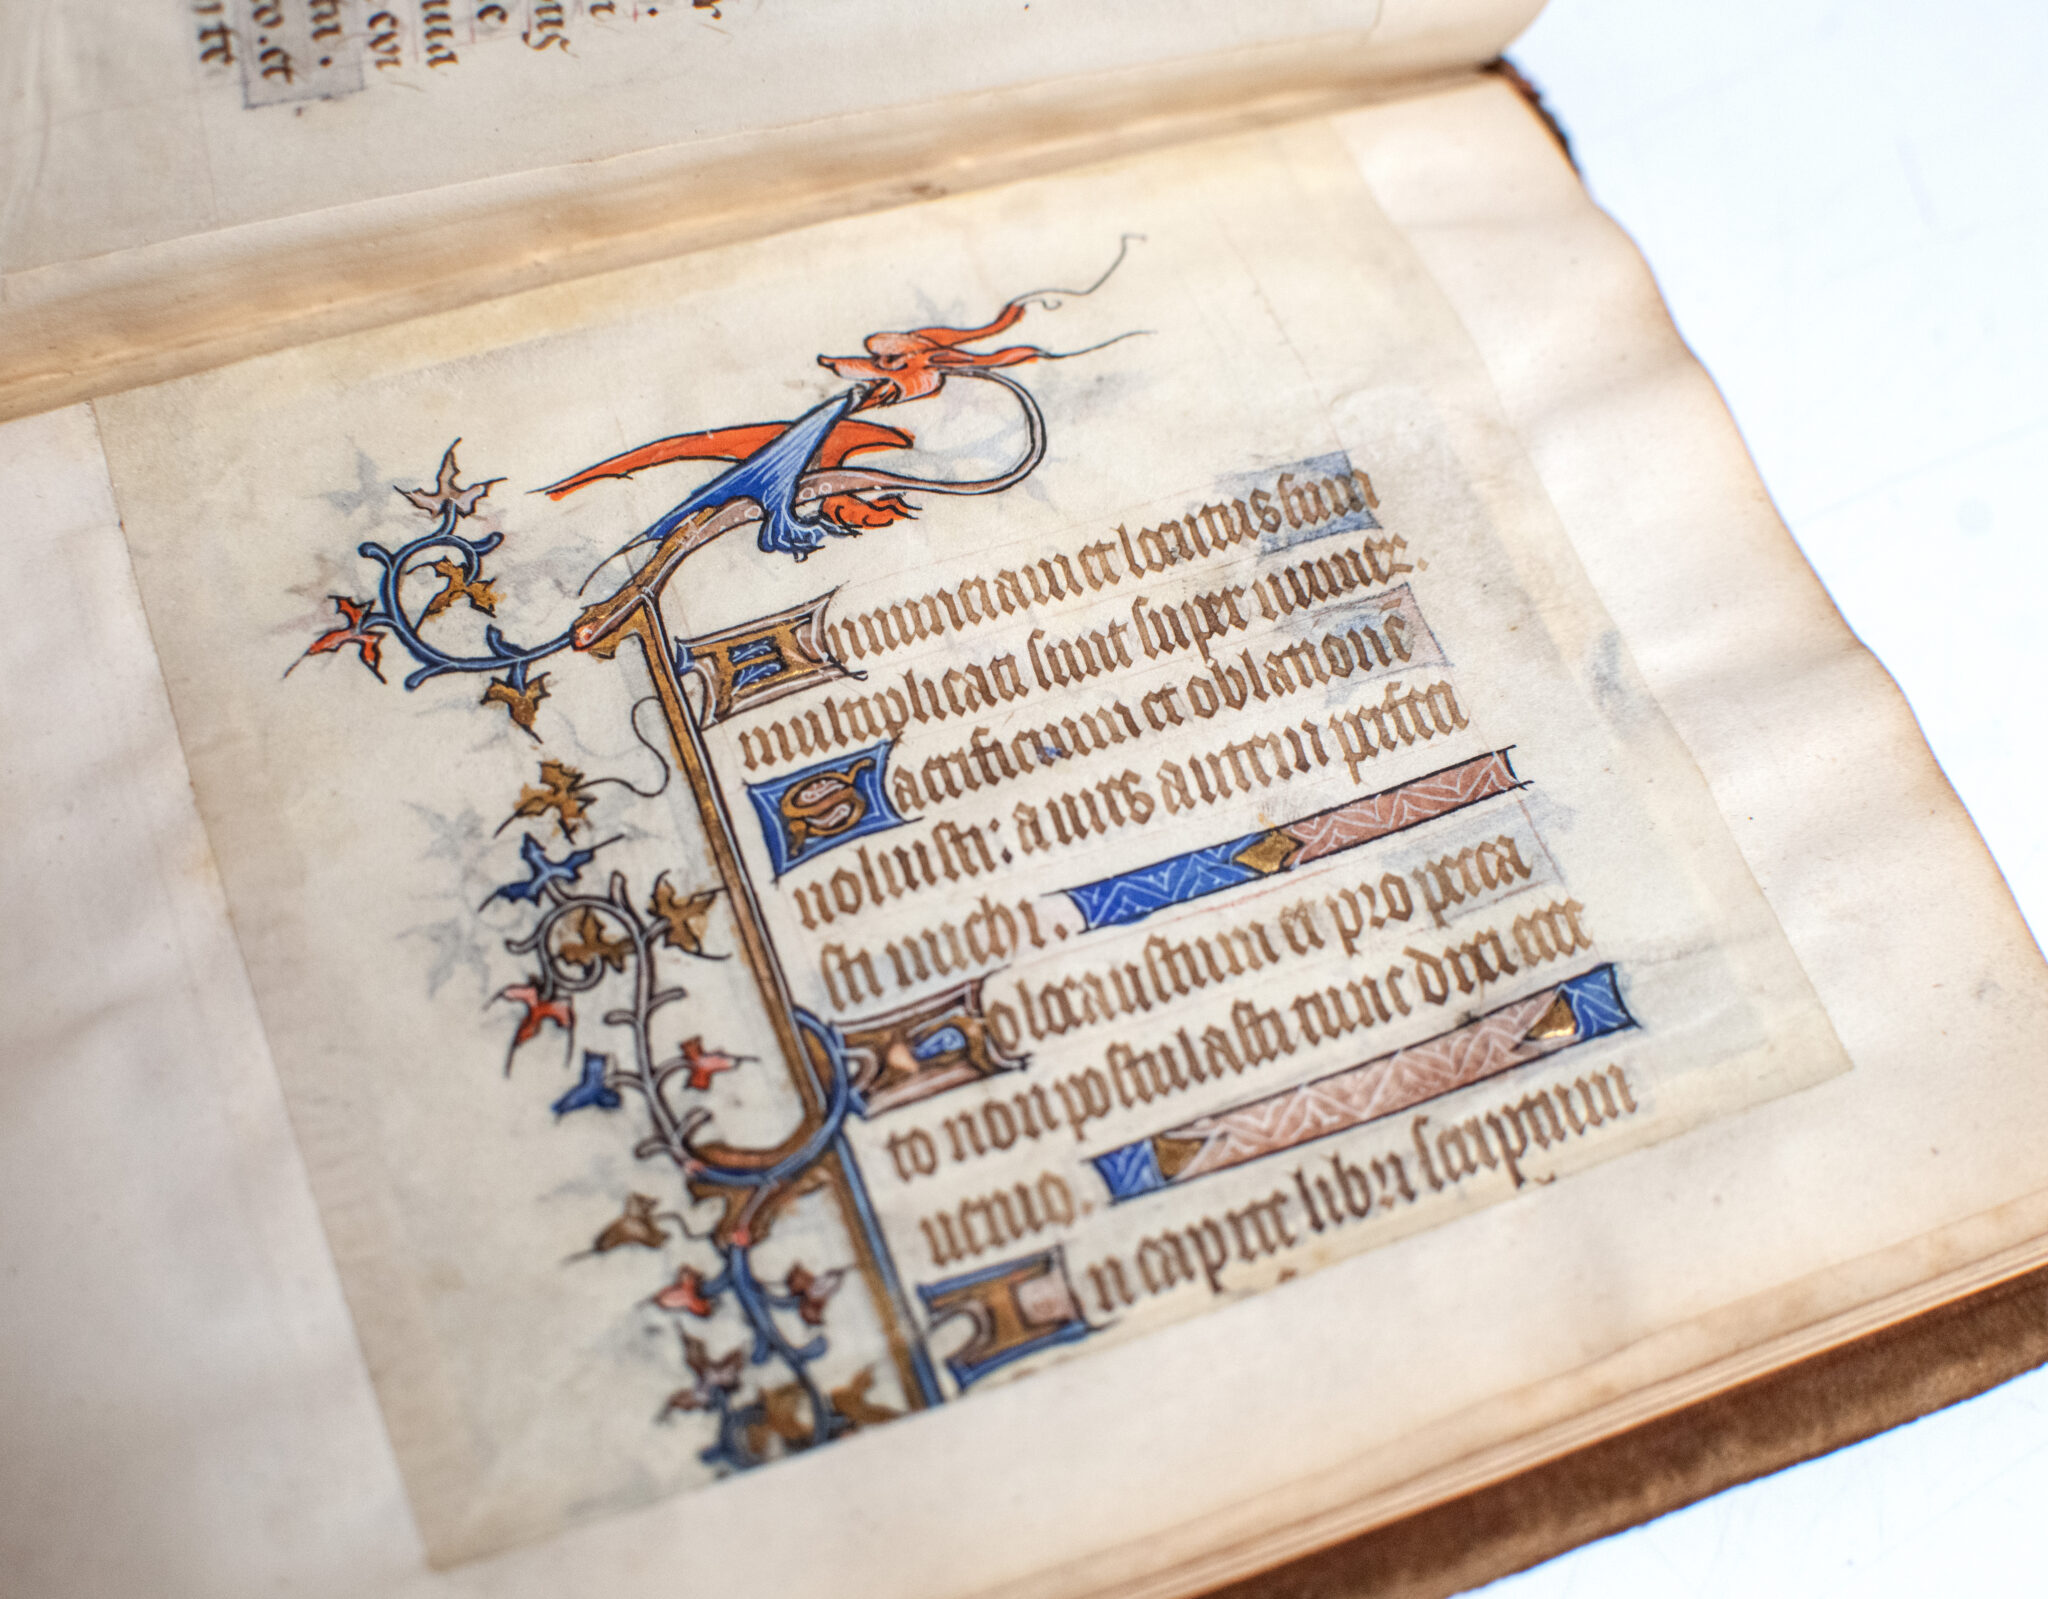 Annunciaui et locutus sum
multiplicati sunt super numeꝝ.
Sacrificium et oblationē
noluisti: aures autem perfeci
sti michi.
Holocaustum et pro pecca
to non postulasti tunc dixi ecce
uenio.
In capite libri scriptum